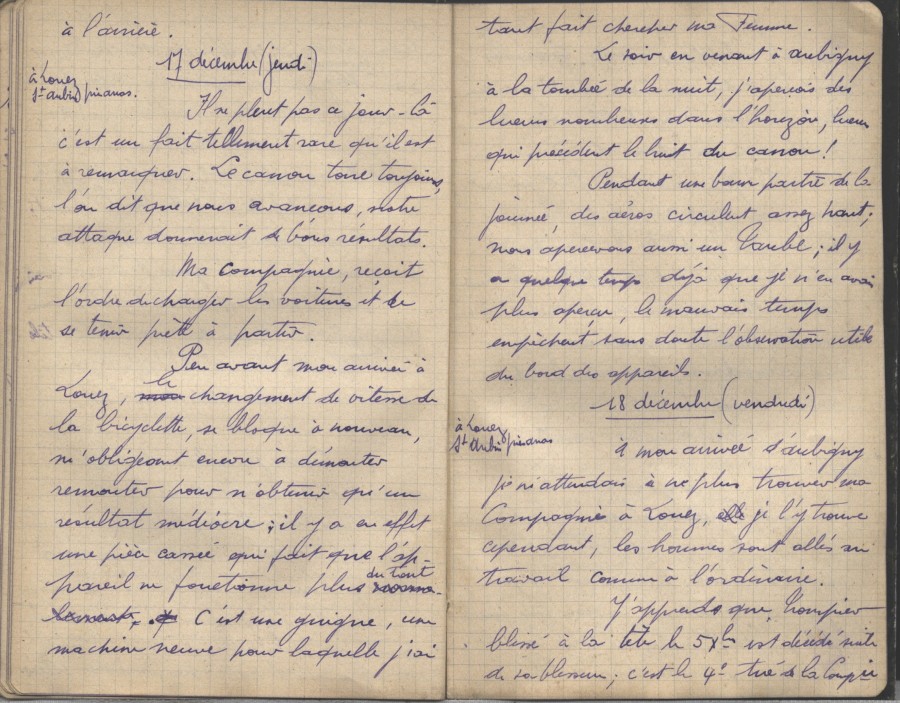 à l'arrière.
17 décembre (jeudi)
à Louez
St Aubin
Il ne pleut pas ce jour-là
c'est un fait tellement rare qu'il est
à remarquer. Le canon tone toujours,
l'on dit que nous avancons, notre
attaque donnerait de bons résultats.
Ma Compagnie, reçoit
l'ordre de charger les voitures et de
se tenir prête à partir.
Peu avant mon arrivée à
Louez, le changement de vitesse de
la bicyclette, se bloque à nouveau,
m'obligeant encore à démonter
remonter pour n'obtenir qu'un
résultat médiocre ; il y a en effet
une pièce cassée qui fait que l'ap-
pareil ne fonctionne plus du tout
C'est une guigne, une
machine neuve pour laquelle j'ai
tant fait chercher ma Femme.
Le soir en venant à Aubigny
à la tombée de la nuit, j'aperçois des
lueurs nombreuses dans l'horizon, lueurs
qui précèdent le bruit du canon !
Pendant une bonne partie de la
journée, des aéros circulent assez haut ;
nous apercevons aussi un Taube ; il y
a quelque temps déjà que je n'en avais
plus aperçu, le mauvais temps
empêchent sans doute l'observation utile
du bord des appareils.
18 décembre (vendredi)
à Louez
St Aubin
A mon arrivée d'Aubigny
je m'attendais à ne plus trouver ma
Compagnie à Louez, je l'y trouve
cependant, les hommes sont allés au
travail comme à l'ordinaire.
J'apprends que
blessé à la tête le 5 est décédé suite
de sa blessure ; c'est le 4e tué de la Compie